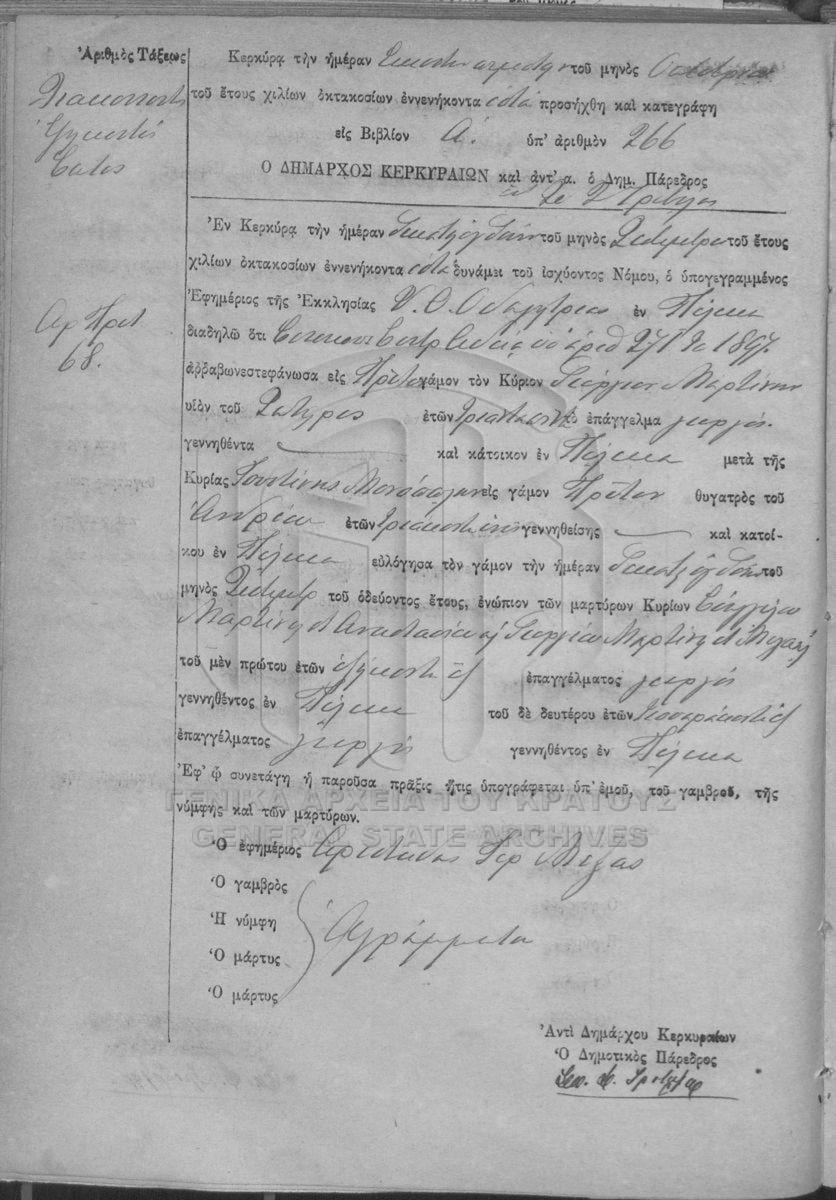 Ἀριθμὸς Τάξεως
Διακοσιοστὸς
ἑξηκοστὸς
ἕκτος
Αρ Πρωτ
68.
Κερκύρᾳ τὴν ἡμέραν τοῦ μηνὸς Οκτωβρίου
τοῦ ἔτους χιλίων ὀκτακοσίων ἐννενήκοντα ἑπτὰ προσήχθη καὶ κατεγράφη
εἰς Βιβλίον Α. ὑπ' ἀριθμὸν 266
Ο ΔΗΜΑΡΧΟΣ ΚΕΡΚΥΡΑΙΩΝ καὶ ἀντ' α. ὁ Δημ. Πάρεδρος
Ἐν Κερκύρᾳ τὴν ἡμέραν δεκάτην ὀγδόην τοῦ μηνὸς Σεπτεμβρίου τοῦ ἔτους
χιλίων ὀκτακοσίων ἐννενήκοντα ἑπτὰ δυνάμει τοῦ ἰσχύοντος Νόμου, ὁ ὑπογεγραμμένος
Ἐφημέριος τῆς Ἐκκλησίας Υ. Θ. Οδηγητρίας ἐν Πέλεκα
διαδηλῶ ὅτι ὑπ' ἀριθ 271 1897.
ἀῤῥαβωνεστεφάνωσα εἰς Πρῶτον γάμον τὸν Κύριον Γεώργιον Μαρτίνην
υἱὸν τοῦ Σωτῆρος ἐτῶν ἐπάγγελμα γεωργὸς
γεννηθέντα — καὶ κάτοικον ἐν Πέλεκα μετὰ τῆς
Κυρίας Ἰουστίνης εἰς γάμον Πρῶτον θυγατρὸς τοῦ
Ἀνδρέου ἐτῶν γεννηθείσης — καὶ κατοί-
κου ἐν Πέλεκα εὐλόγησα τὸν γάμον τὴν ἡμέραν δεκάτην ὀγδόην τοῦ
μηνὸς Σεπτεμβρ τοῦ ὁδεύοντος ἔτους, ἐνώπιον τῶν μαρτύρων Κυρίων Εὐαγγέλου
Μαρτίνη Αναστασίου κ Γεωργίου Μαρτίνη
τοῦ μὲν πρώτου ἐτῶν ἑξήκοντα ἐπαγγέλματος γεωργὸς
γεννηθέντος ἐν Πέλεκα τοῦ δὲ δευτέρου ἐτῶν τεσσαράκοντα
ἐπαγγέλματος γεωργὸς γεννηθέντος ἐν Πέλεκα
Ἐφ' ᾧ συνετάγη ἡ παροῦσα πρᾶξις ἥτις ὑπογράφεται ὑπ' ἐμοῦ, τοῦ γαμβροῦ, τῆς
νύμφης καὶ τῶν μαρτύρων.
ΓΕΝΙΚΑ ΑΡΧΕΙΑ ΤΟΥ ΚΡΑΤΟΥΣ
GENERAL STATE ARCHIVES
Ὁ ἐφημέριος
Ὁ γαμβρὸς
Ἡ νύμφη
Ὁ μάρτυς
Ὁ μάρτυς
Αγράμματοι
Ἀντὶ Δημάρχου Κερκυραίων
Ὁ Δημοτικὸς Πάρεδρος